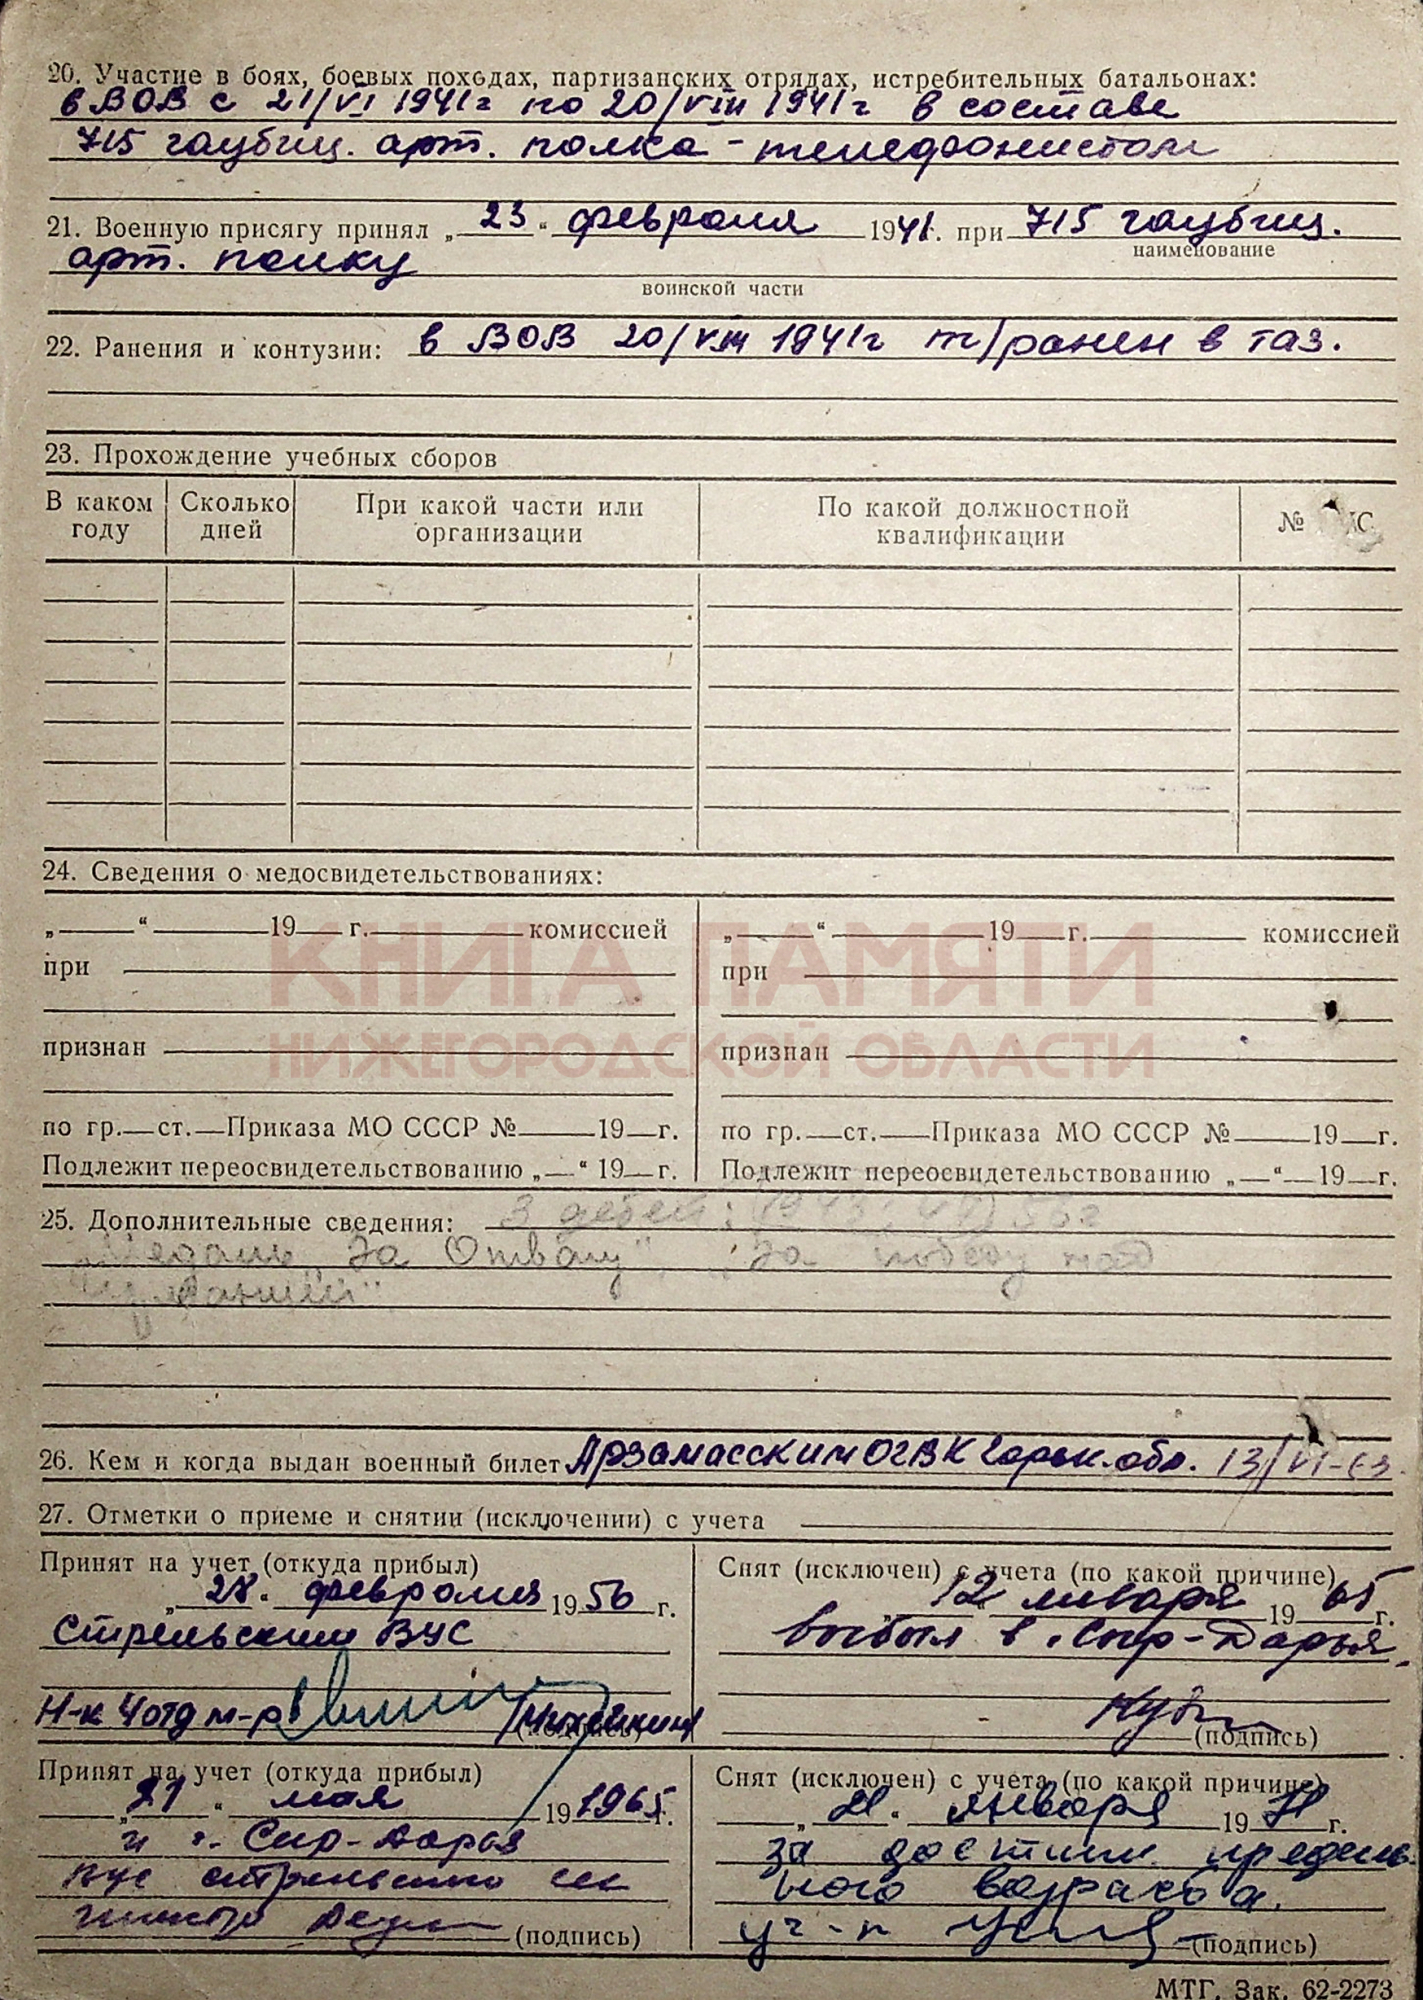 20. Участие в боях, боевых походах, партизанских отрядах, истребительных батальонах:
в ВОВ с 21/VI 1941г по 20/VIII 1941г в составе
715 гаубиц. арт. полка - телефонистом
21. Военную присягу принял „23“ февраля 1941г. при 715 гаубиц.
наименование
арт. полку
воинской части
22. Ранения и контузии: в ВОВ 20/VIII 1941г т/ранен в таз.
23. Прохождение учебных сборов
В каком году
Сколько дней
При какой части или организации
По какой должностной квалификации
№
24. Сведения о медосвидетельствованиях:
„ “ 19 г. комиссией
„ “ 19 г. комиссией
КНИГА ПАМЯТИ
при
при
НИЖЕГОРОДСКОЙ ОБЛАСТИ
признан
признан
по гр. ст. Приказа МО СССР № 19 г.
по гр. ст. Приказа МО СССР № 19 г.
Подлежит переосвидетельствованию „ “ 19 г.
Подлежит переосвидетельствованию „ “ 19 г.
25. Дополнительные сведения: 3 детей:
Медаль „За Отвагу“, „За победу над
Германией“
26. Кем и когда выдан военный билет Арзамасским ОГВК Горьк. обл. 13/VI-63
27. Отметки о приеме и снятии (исключении) с учета
Принят на учет (откуда прибыл)
„28“ февраля 1956 г.
Стрельским ВУС
Н-к 4 отд м-р
(подпись)
Снят (исключен) с учета (по какой причине)
12 января 1965 г.
выбыл в Сыр-Дарья.
(подпись)
Принят на учет (откуда прибыл)
„21“ мая 19 1965 г.
Сыр-Дарья
ВУС
(подпись)
Снят (исключен) с учета (по какой причине)
„21“ января 1971 г.
за достиж. предель-
ного возраста.
(подпись)
МТГ. Зак. 62-2273